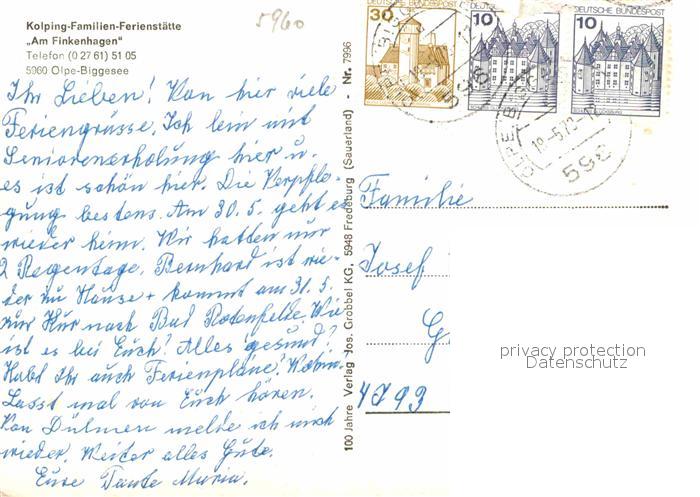 5960
Kolping-Familien-Ferienstätte
"Am Finkenhagen"
Telefon (0 27 61) 51 05
5960 Olpe-Biggesee
Ihr Lieben! Von hier viele
Feriengrüsse. Ich bin mit
Seniorenerholung hier u.
es ist schön hier. Die Verpfle-
gung bestens. Am 30. 5. geht es
wieder heim. Wir hatten nur
2 Regentage. Bernhard ist wie-
der zu Hause + kommt am 31. 5.
zur Kur nach Bad Rotenfelde. Wie
ist es bei Euch? Alles gesund?
Habt Ihr auch Ferienpläne? Wohin.
Lasst mal von Euch hören.
Von Dülmen melde ich mich
wieder. Weiter alles Gute.
Eure Tante Maria.
100 Jahre Verlag Jos. Grobbel KG, 5948 Fredeburg (Sauerland) - Nr. 7996
30
10
DEUTSCHE BUNDESPOST
10
DEUTSCHE BUNDESPOST
OLPE BIGGESEE
596
Familie
Josef
G
4793
privacy protection
Datenschutz